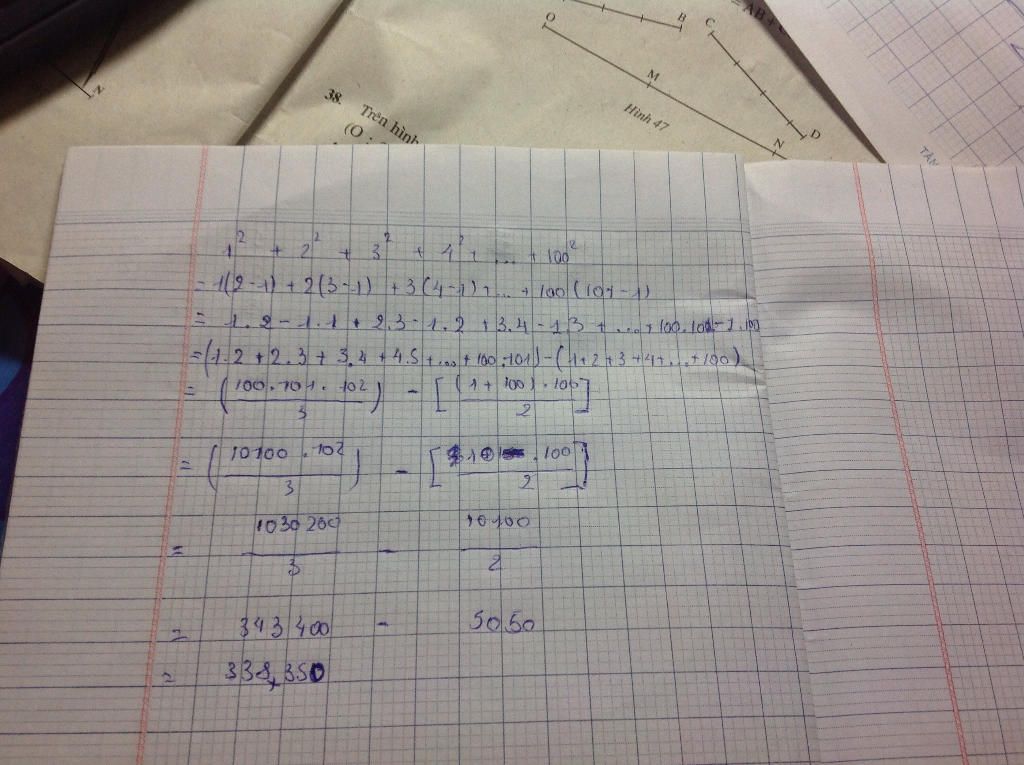 B
C
= AB +
O
M
N
D
N
38. Trên hình
(O ;
Hình 47
1² + 2² + 3² + 4² + ... + 100²
= 1(2-1) + 2(3-1) + 3(4-1) + ... + 100(101-1)
= 1.2 - 1.1 + 2.3 - 1.2 + 3.4 - 1.3 + ... + 100.101 - 1.100
= (1.2 + 2.3 + 3.4 + 4.5 + ... + 100.101) - (1+2+3+4+...+100)
= (100.101.102/3) - [(1+100).100/2]
= (10100.102/3) - [101.100/2]
= 1030200/3 - 10100/2
= 343400 - 5050
= 338,350